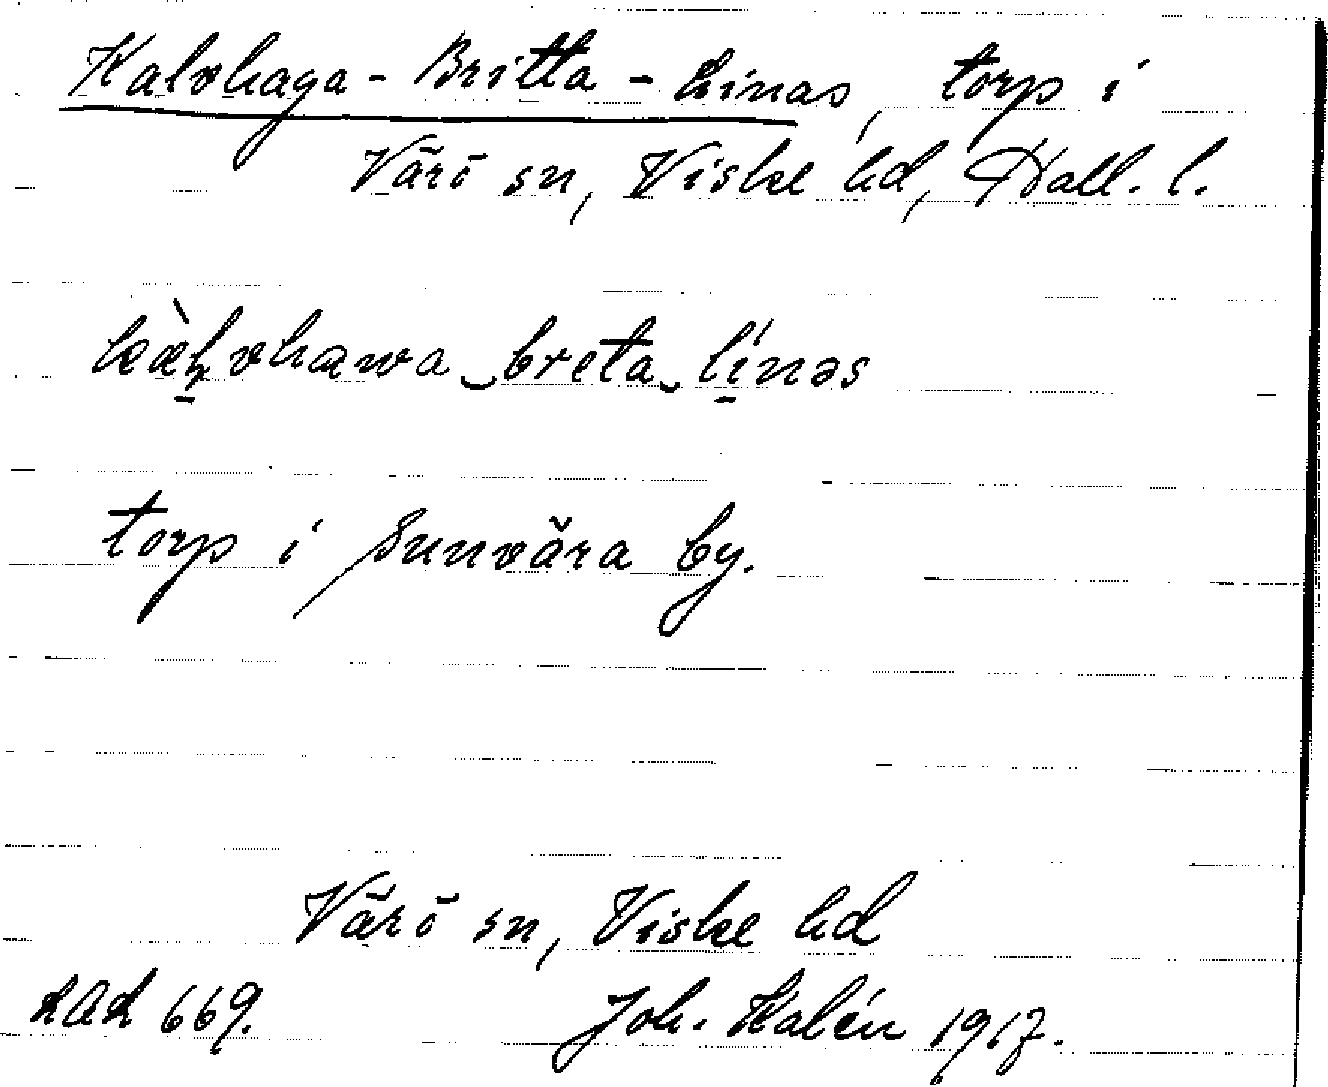 Kalvhaga-Britta-Linas, torp i
Värö sn, Viske hd, Hall. l.
breta línəs
torp i Sunvära by.
Värö sn, Viske hd
LAL 669. Joh. Kalén 1917.